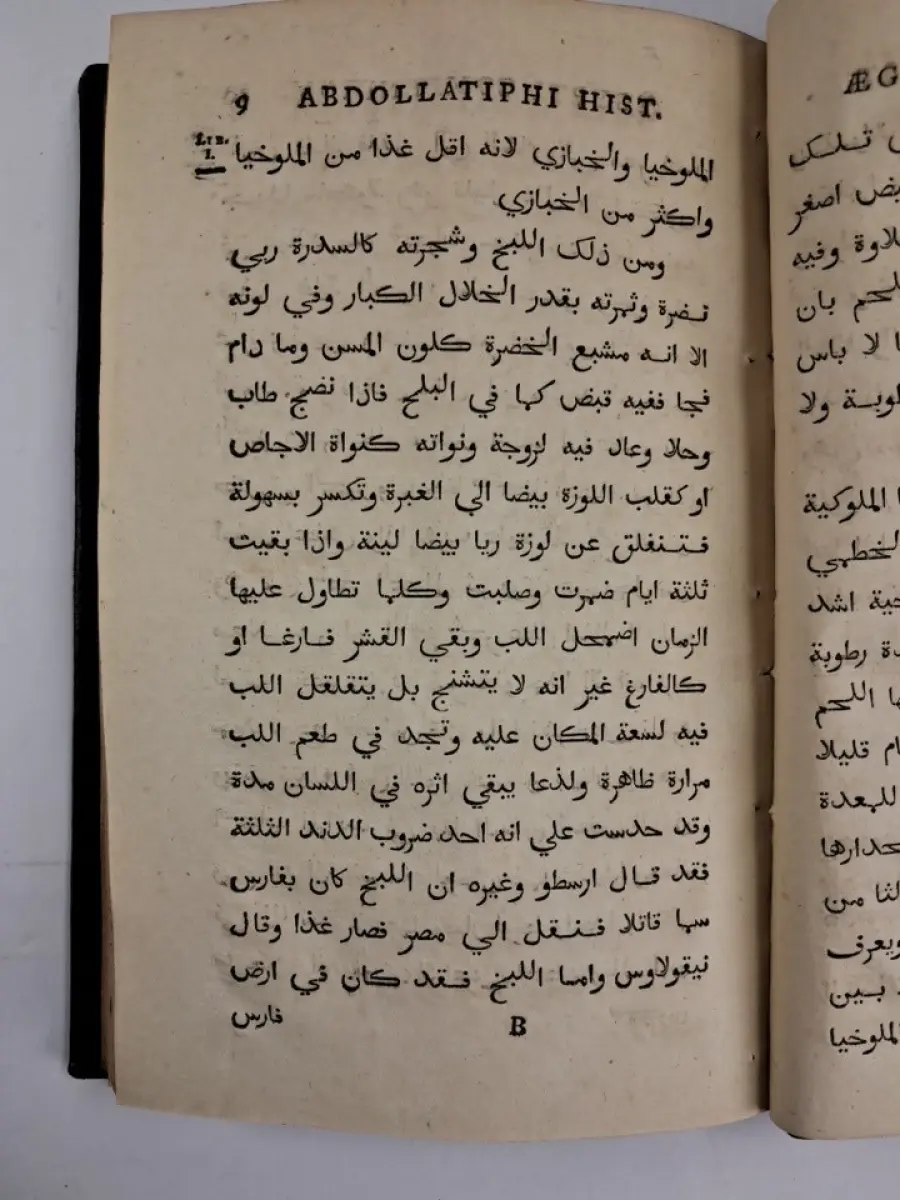 9 ABDOLLATIPHI HIST.
LIB. I.
الملوخيا والخبازي لانه اقل غذا من الملوخيا
واكثر من الخبازي
ومن ذلك اللبخ وشجرته كالسدرة ربي
نضرة وثمرته بقدر الخلال الكبار وفي لونه
الا انه مشبع الخضرة كلون المسن وما دام
فجا ففيه قبض كما في البلح فاذا نضج طاب
وحلا وعاد فيه لزوجة ونواته كنواة الاجاص
او كقلب اللوزة بيضا الي الغبرة وتكسر بسهولة
فتنفلق عن لوزة ريا بيضا لينة واذا بقيت
ثلثة ايام ضمرت وصلبت وكلما تطاول عليها
الزمان اضمحل اللب وبقي القشر فارغا او
كالفارغ غير انه لا يتشنج بل يتقلقل اللب
فيه لسعة المكان عليه وتجد في طعم اللب
مرارة ظاهرة ولذعا يبقي اثره في اللسان مدة
وقد حدست علي انه احد ضروب الدند الثلثة
فقد قال ارسطو وغيره ان اللبخ كان بفارس
سما قاتلا فنقل الي مصر فصار غذا وقال
نيقولاوس واما اللبخ فقد كان في ارض
B فارس
ÆG
تلك
اصغر
وفيه
بان
لا باس
ولا
الملوكية
اشد
رطوبة
اللحم
قليلا
للمعدة
من
ويعرف
بين
الملوخيا